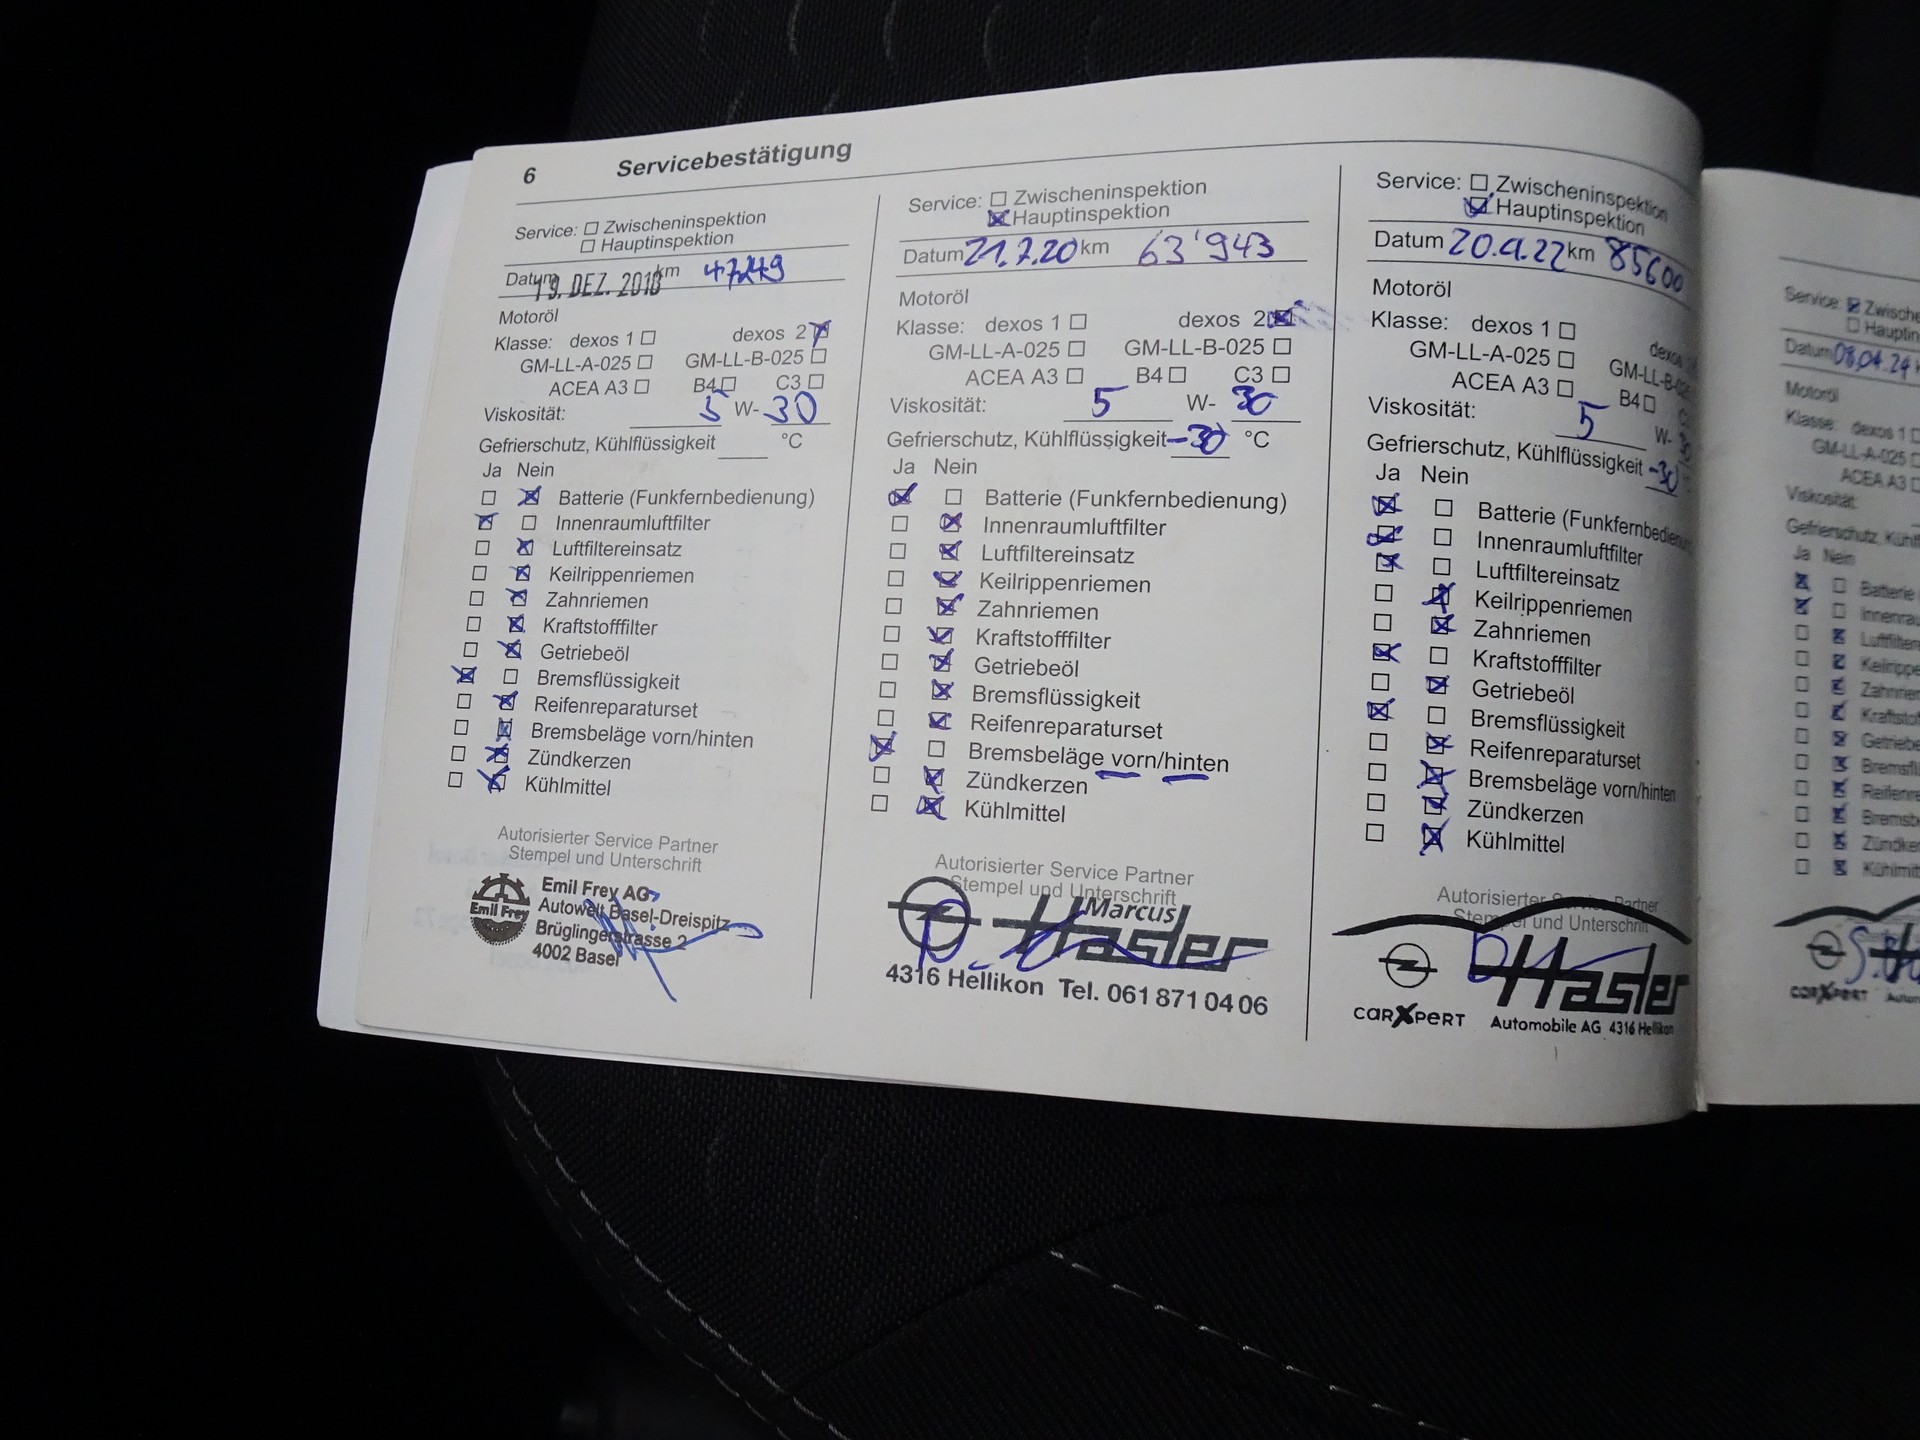 6 Servicebestätigung
Service: Zwischeninspektion
Hauptinspektion
Datum 19. DEZ. 2018 km 47249
Motoröl
Klasse: dexos 1 dexos 2
GM-LL-A-025 GM-LL-B-025
ACEA A3 B4 C3
Viskosität: 5 W- 30
Gefrierschutz, Kühlflüssigkeit °C
Ja Nein
Batterie (Funkfernbedienung)
Innenraumluftfilter
Luftfiltereinsatz
Keilrippenriemen
Zahnriemen
Kraftstofffilter
Getriebeöl
Bremsflüssigkeit
Reifenreparaturset
Bremsbeläge vorn/hinten
Zündkerzen
Kühlmittel
Autorisierter Service Partner
Stempel und Unterschrift
Emil Frey
Emil Frey AG
Autowelt Basel-Dreispitz
Brüglingerstrasse 2
4002 Basel
Service: Zwischeninspektion
Hauptinspektion
Datum 21.7.20 km 63'943
Motoröl
Klasse: dexos 1 dexos 2
GM-LL-A-025 GM-LL-B-025
ACEA A3 B4 C3
Viskosität: 5 W- 30
Gefrierschutz, Kühlflüssigkeit -30 °C
Ja Nein
Batterie (Funkfernbedienung)
Innenraumluftfilter
Luftfiltereinsatz
Keilrippenriemen
Zahnriemen
Kraftstofffilter
Getriebeöl
Bremsflüssigkeit
Reifenreparaturset
Bremsbeläge vorn/hinten
Zündkerzen
Kühlmittel
Autorisierter Service Partner
Stempel und Unterschrift
Marcus
Hasler
4316 Hellikon Tel. 061 871 04 06
Service: Zwischeninspektion
Hauptinspektion
Datum 20.4.22 km 85600
Motoröl
Klasse: dexos 1 dexos
GM-LL-A-025 GM-LL-B-025
ACEA A3 B4 C
Viskosität: 5 W- 30
Gefrierschutz, Kühlflüssigkeit -30
Ja Nein
Batterie (Funkfernbedienung
Innenraumluftfilter
Luftfiltereinsatz
Keilrippenriemen
Zahnriemen
Kraftstofffilter
Getriebeöl
Bremsflüssigkeit
Reifenreparaturset
Bremsbeläge vorn/hinten
Zündkerzen
Kühlmittel
Autorisierter Service Partner
Stempel und Unterschrift
Hasler
carXpert Automobile AG 4316 Hellikon
Service: Zwische
Hauptin
Datum 08.04.24
Motoröl
Klasse: dexos 1
GM-LL-A-025
ACEA A3
Viskosität:
Gefrierschutz, Kühlf
Ja Nein
Batterie
Innenrau
Luftfilter
Keilrippe
Zahnrie
Kraftstof
Getriebe
Bremsfl
Reifenre
Bremsbe
Zündke
Kühlmit
carXpert Autom